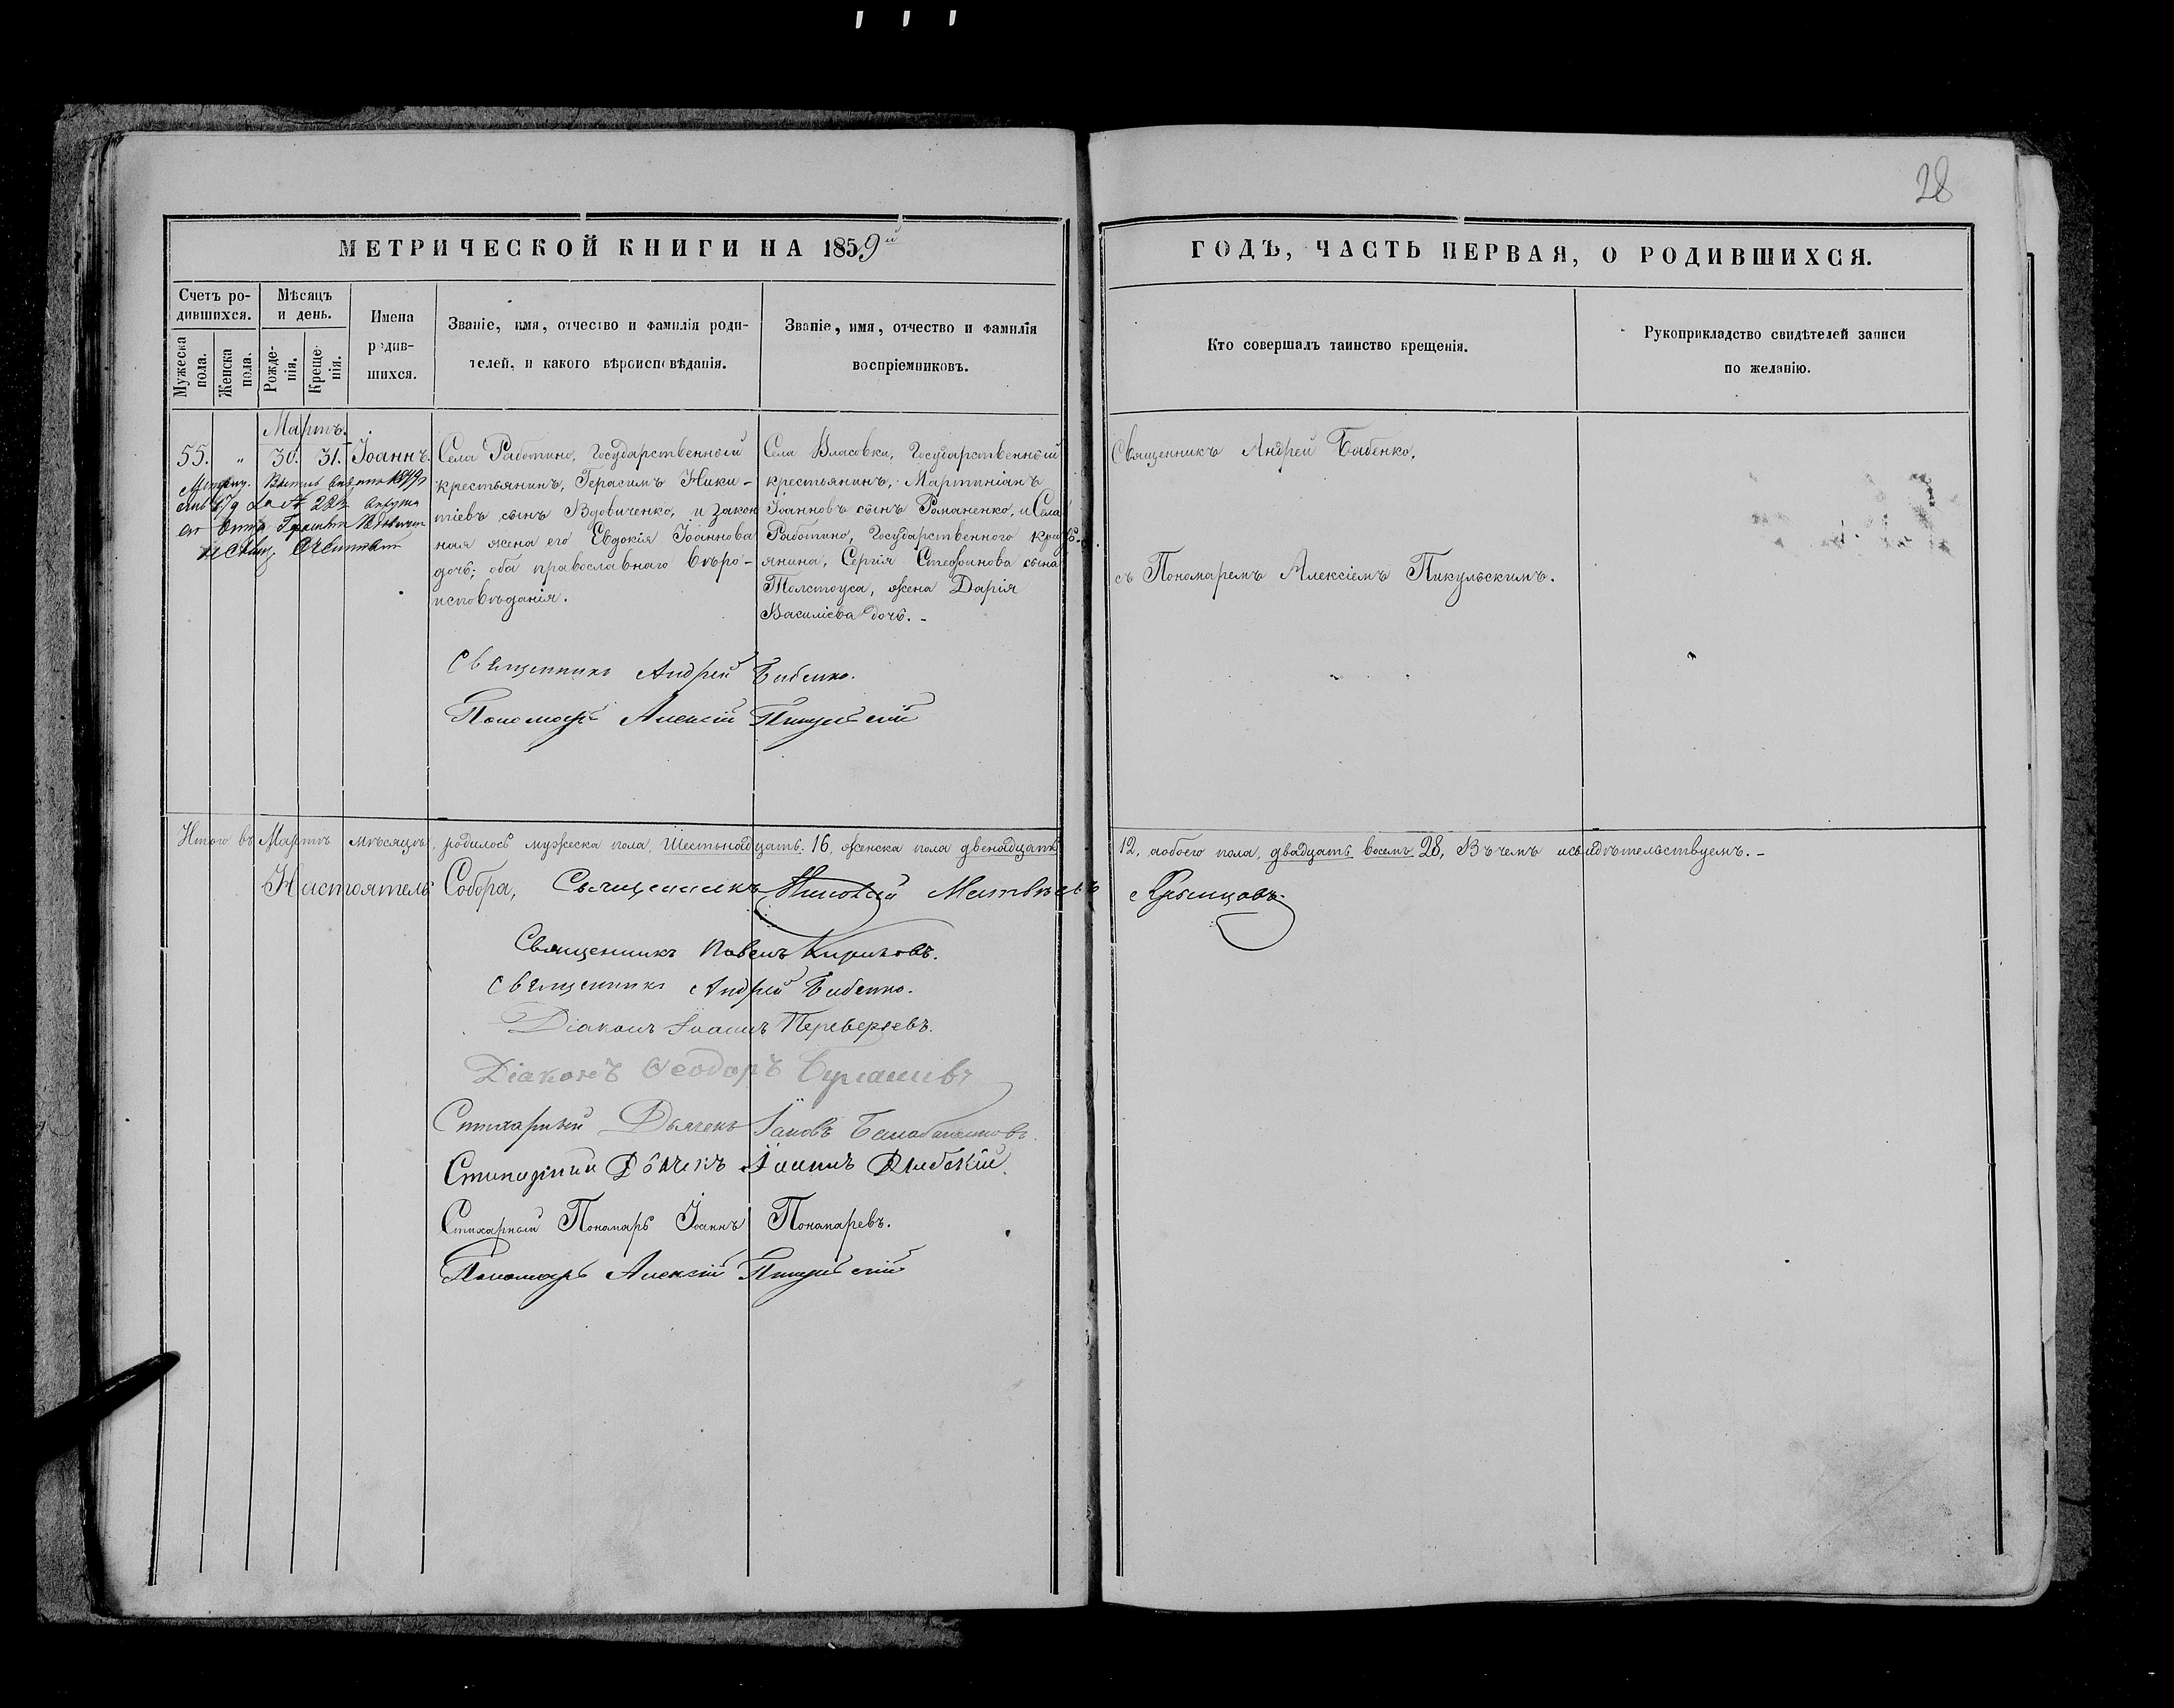 28
МЕТРИЧЕСКОЙ КНИГИ НА 1859й
ГОДЪ, ЧАСТЬ ПЕРВАЯ, О РОДИВШИХСЯ.
Счетъ ро-
дившихся.
Мужеска пола.
Женска пола.
Мѣсяцъ
и день.
Рожде-
нія.
Креще-
нія.
Имена
родив-
шихся.
Званіе, имя, отчество и фамилія роди-
телей, и какого вѣроисповѣданія.
Званіе, имя, отчество и фамилія
воспріемниковъ.
Кто совершалъ таинство крещенія.
Рукоприкладство свидѣтелей записи
по желанію.
Мартъ.
55. " 30. 31. Іоаннъ.
Села Работино, Государственный
крестьянинъ, Герасимъ Ники-
тіевъ сынъ Вдовиченко, и закон
ная жена его Евдокія Іоаннова
дочь; оба православнаго вѣро-
исповѣданія.
Села Власовки, Государственный
крестьянинъ, Мартиніанъ
Іоанновъ сынъ Романенко, и Села
Работино, Государственного крес
янина, Сергія Стефанова сына
Толстоуса, жена Дарія
Василіева дочь. -
Священникъ Андрей Бабенко,
съ Пономаремъ Алексіемъ Пикульскимъ.
Священникъ Андрей Бабенко.
Пономарь Алексій Пикульскій
Итого въ Мартѣ мѣсяцѣ, родилось мужеска пола, Шестьнадцать: 16, женска пола двенадцать
12, а обоего пола, двадцать восемь 28, Въ чемъ и свидѣтельствуемъ. -
Настоятель Собора, Священникъ Николай Матвѣевъ
Священникъ Павелъ Кириловъ.
Священникъ Андрей Бабенко.
Діаконъ Іоаннъ Переверзевъ.
Діаконъ Ѳеодоръ
Стихарный Дьячекъ Іаковъ
Стихарный Дьячекъ Іоаннъ
Стихарный Пономарь Іоаннъ Пономаревъ.
Пономарь Алексій Пикульскій